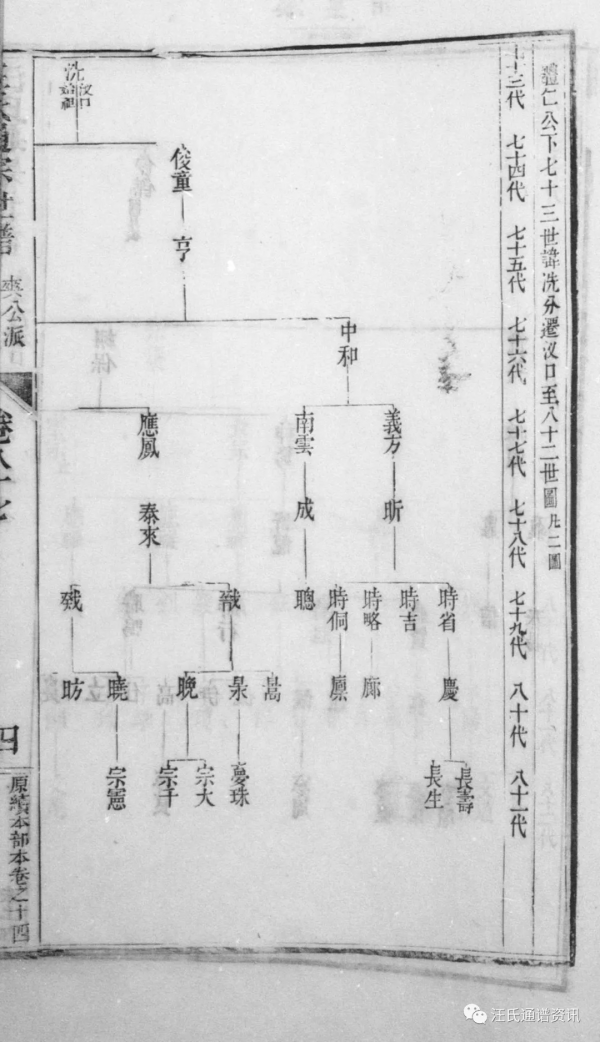 禮仁公下七十三世諱洗分遷汊口至八十二世圖凡二圖
七十三代 七十四代 七十五代 七十六代 七十七代 七十八代 七十九代 八十代 八十一代
洗 汊口始祖
俊童 亨
中和
義方 昕
南雲 成 聰
時省 慶
時吉
時略 廊
時侗 廪
長壽
長生
應鳳 泰來
戩
暠
晜 慶珠
晚 宗大
宗千
殘
曉 宗憲
昉
汪氏通宗世譜
爽公派
卷八十七
四
原續本部本卷之十四
汪氏通谱资讯